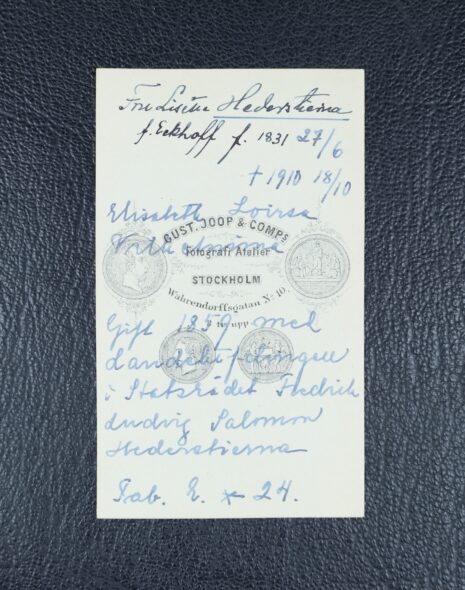 Fru Lisina Hederstierna
f. Eckhoff f. 1831 27/6
† 1910 18/10
Elisabeth Lovisa
Vilhelmina
GUST. JOOP & COMP.
Fotografi Atelier
STOCKHOLM
Wahrendorffsgatan No 10,
1 tr. upp
Gift 1859 med
Landshöfdingen
i Statsrådet Fredrik
Ludvig Salomon
Hederstierna
Tab. E. * 24.